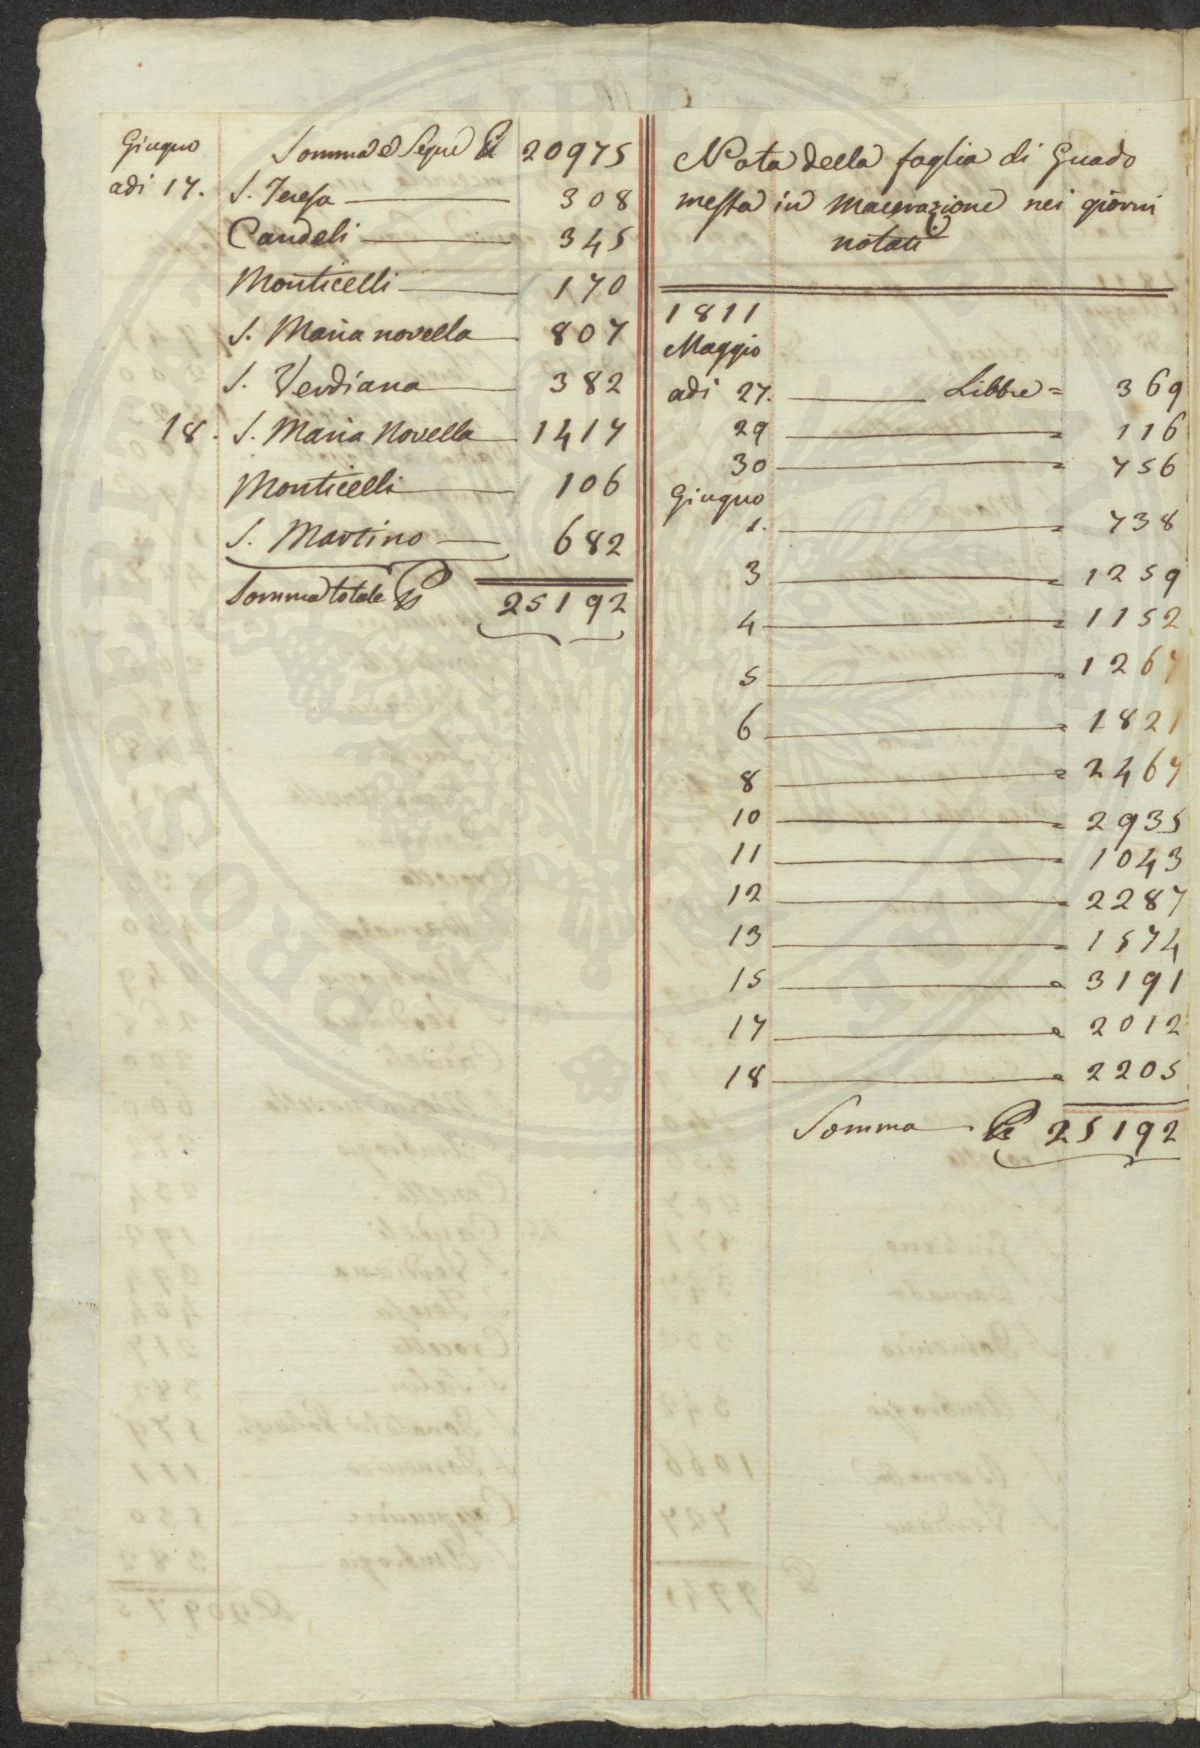 Giugno Somma e Segue ℔ 20975
adi 17. S. Teresa 308
Candeli 345
Monticelli 170
S. Maria novella 807
S. Verdiana 382
18. S. Maria Novella 1417
Monticelli 106
S. Martino 682
Somma totale ℔ 25192
Nota della foglia di Guado
messa in macerazione nei giorni
notati
1811
Maggio
adi 27. Libbre = 369
29 = 116
30 = 756
Giugno
1. = 738
3 = 1259
4 = 1152
5 = 1267
6 = 1821
8 = 2467
10 = 2935
11 = 1043
12 = 2287
13 = 1574
15 = 3191
17 = 2012
18 = 2205
Somma ℔ 25192